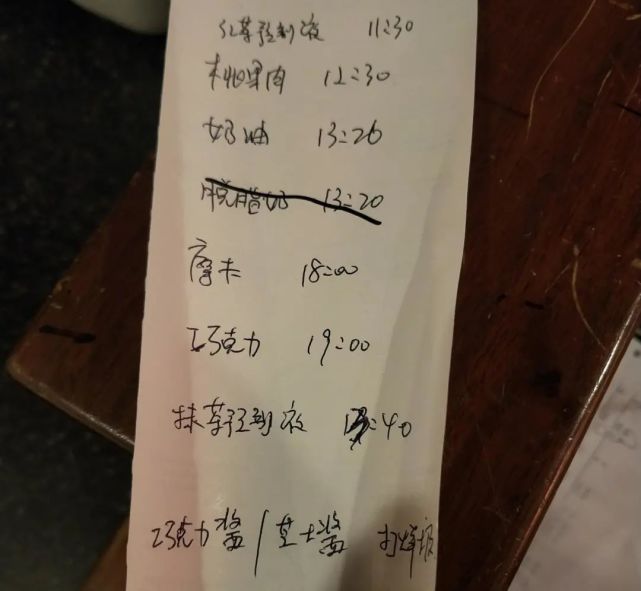 红茶预制液 11:30
水桃果肉 12:30
奶油 13:26
脱脂奶 13:20
摩卡 18:00
巧克力 19:00
抹茶预制液 :40
巧克力酱/芝士酱 打烊报